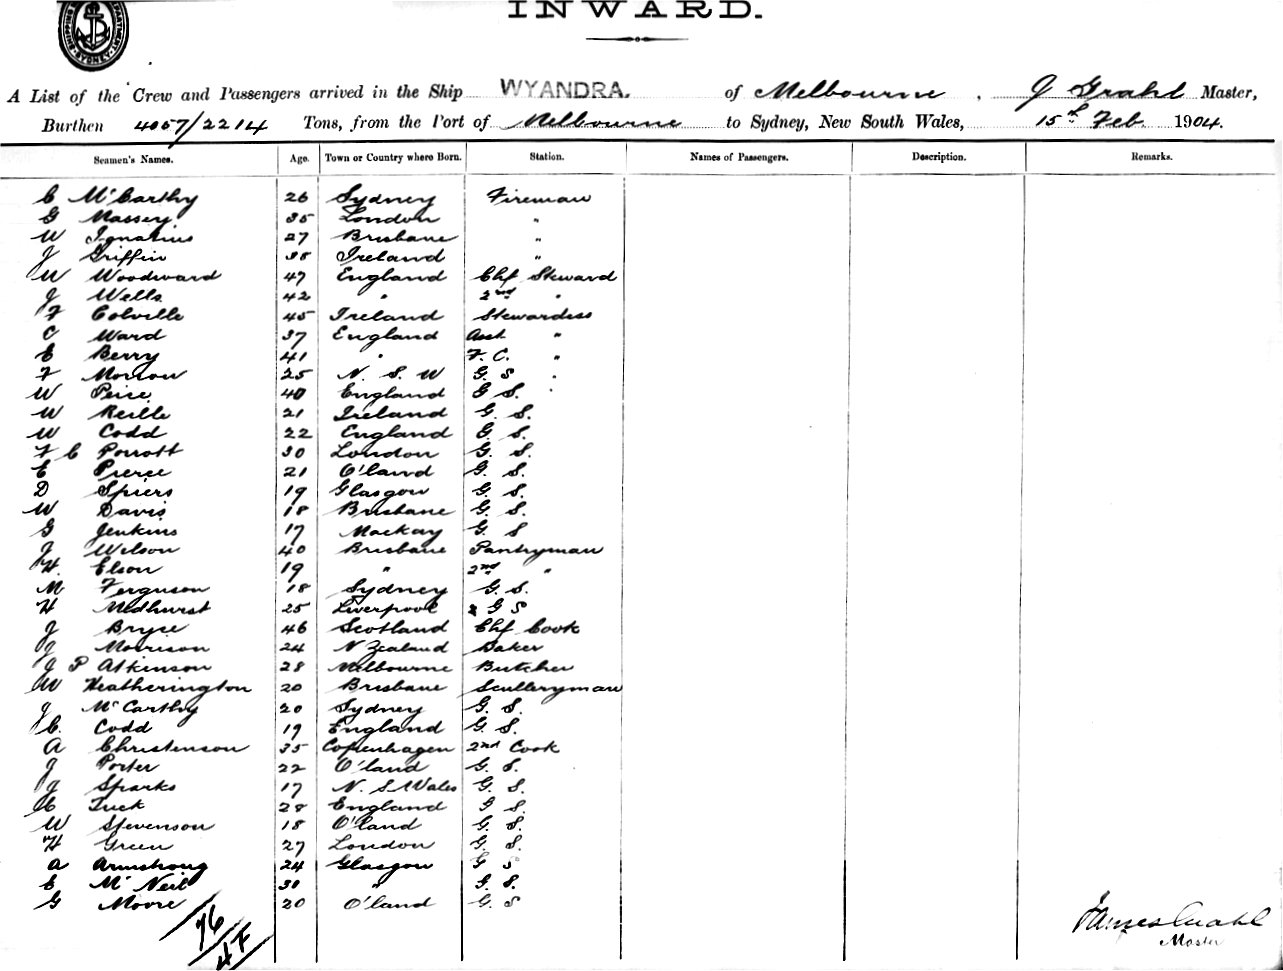 INWARD.
A List of the Crew and Passengers arrived in the Ship WYANDRA. of Melbourne, J Grahl Master,
Burthen 4057/2214 Tons, from the Port of Melbourne to Sydney, New South Wales, 15th Feb. 1904.
Seamen's Names. Age. Town or Country where Born. Station. Names of Passengers. Description. Remarks.
C McCarthy 26 Sydney Fireman
G Massey 35 London "
W Ignatius 27 Brisbane "
J Griffin 38 Ireland "
W Woodward 47 England Chf Steward
J Wells 42 " 2nd "
F Colville 45 Ireland Stewardess
C Ward 37 England Asst "
E Berry 41 " F. C. "
F Morrow 25 N. S. W G. S "
W Peire 40 England G S. "
W Reille 21 Ireland G. S.
W Codd 22 England G. S.
F C Porrott 30 London G. S.
E Pierce 21 Q'land G. S.
D Spiers 19 Glasgow G. S.
W Davis 18 Brisbane G. S.
G Jenkins 17 Mackay G. S
J Wilson 40 Brisbane Pantryman
H. Elson 19 " 2nd "
M Ferguson 18 Sydney G. S.
H Medhurst 25 Liverpool G S
J Bryce 46 Scotland Chf Cook
J Morrison 24 N Zealand Baker
J P Atkinson 28 Melbourne Butcher
W Heatherington 20 Brisbane Sculleryman
J McCarthy 20 Sydney G. S.
C. Codd 19 England G. S.
A Christenson 35 Copenhagen 2nd Cook
J Porter 22 Q'land G. S.
J Sparks 17 N. S. Wales G. S.
C Tuck 28 England G S.
W Stevenson 18 Q'land G. S.
H Green 27 London G. S.
A Armstrong 24 Glasgow G S
E McNeil 30 " G. S.
G Moore 20 Q'land G. S
76
47
James Grahl
Master